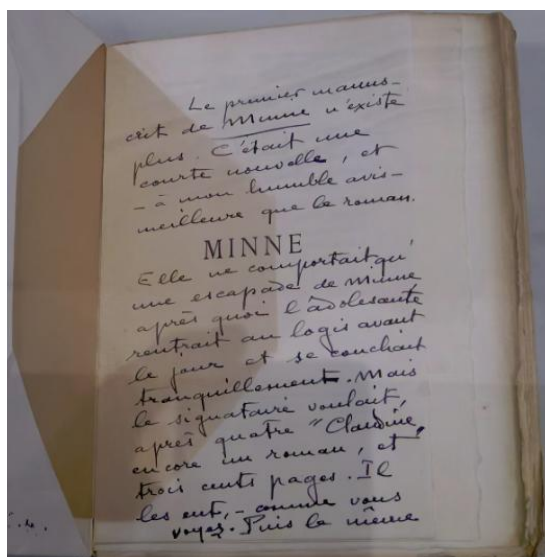 Le premier manus-
crit de Minne n'existe
plus. C'était une
courte nouvelle, et
- à mon humble avis -
meilleure que le roman.
MINNE
Elle ne comportait qu'
une escapade de Minne
après quoi l'adolescente
rentrait au logis avant
le jour et se couchait
tranquillement. Mais
le signataire voulait,
après quatre "Claudine,
encore un roman, et
trois cents pages. Il
les eut, - comme vous
voyez. Puis le même